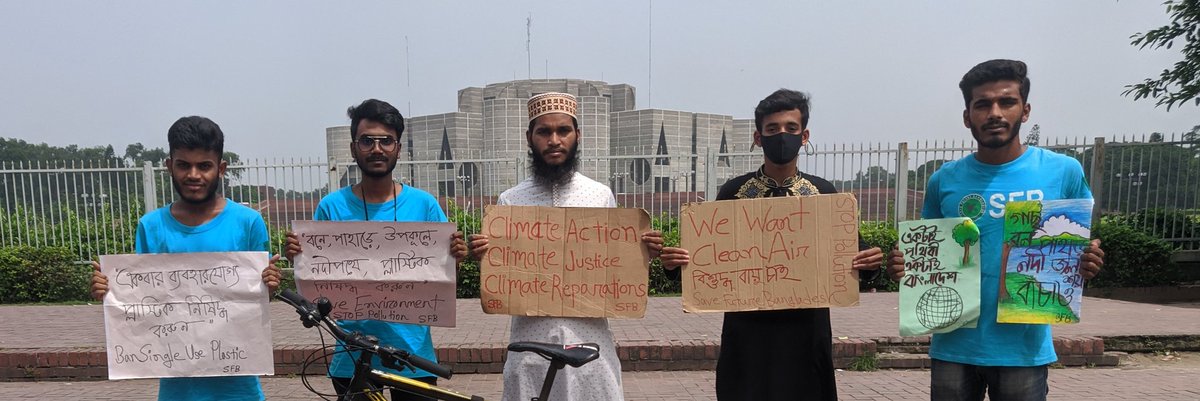 "একবার ব্যবহারযোগ্য
প্লাস্টিক নিষিদ্ধ
করুন"
Ban Single Use Plastic
SFB
"বনে, পাহাড়ে, উপকূলে,
নদীপথে, প্লাস্টিক
নিষিদ্ধ করুন"
Save Environment
STOP Pollution
SFB
Climate Action
Climate Justice
Climate Reparations
SFB
We Want
Clean Air
বিশুদ্ধ বায়ু চাই
Save Future Bangladesh
Stop Pollution
SFB
একটাই
পৃথিবী
একটাই
বাংলাদেশ
SFB
গাছ
বন পাহাড়
নদী
বাঁচাও